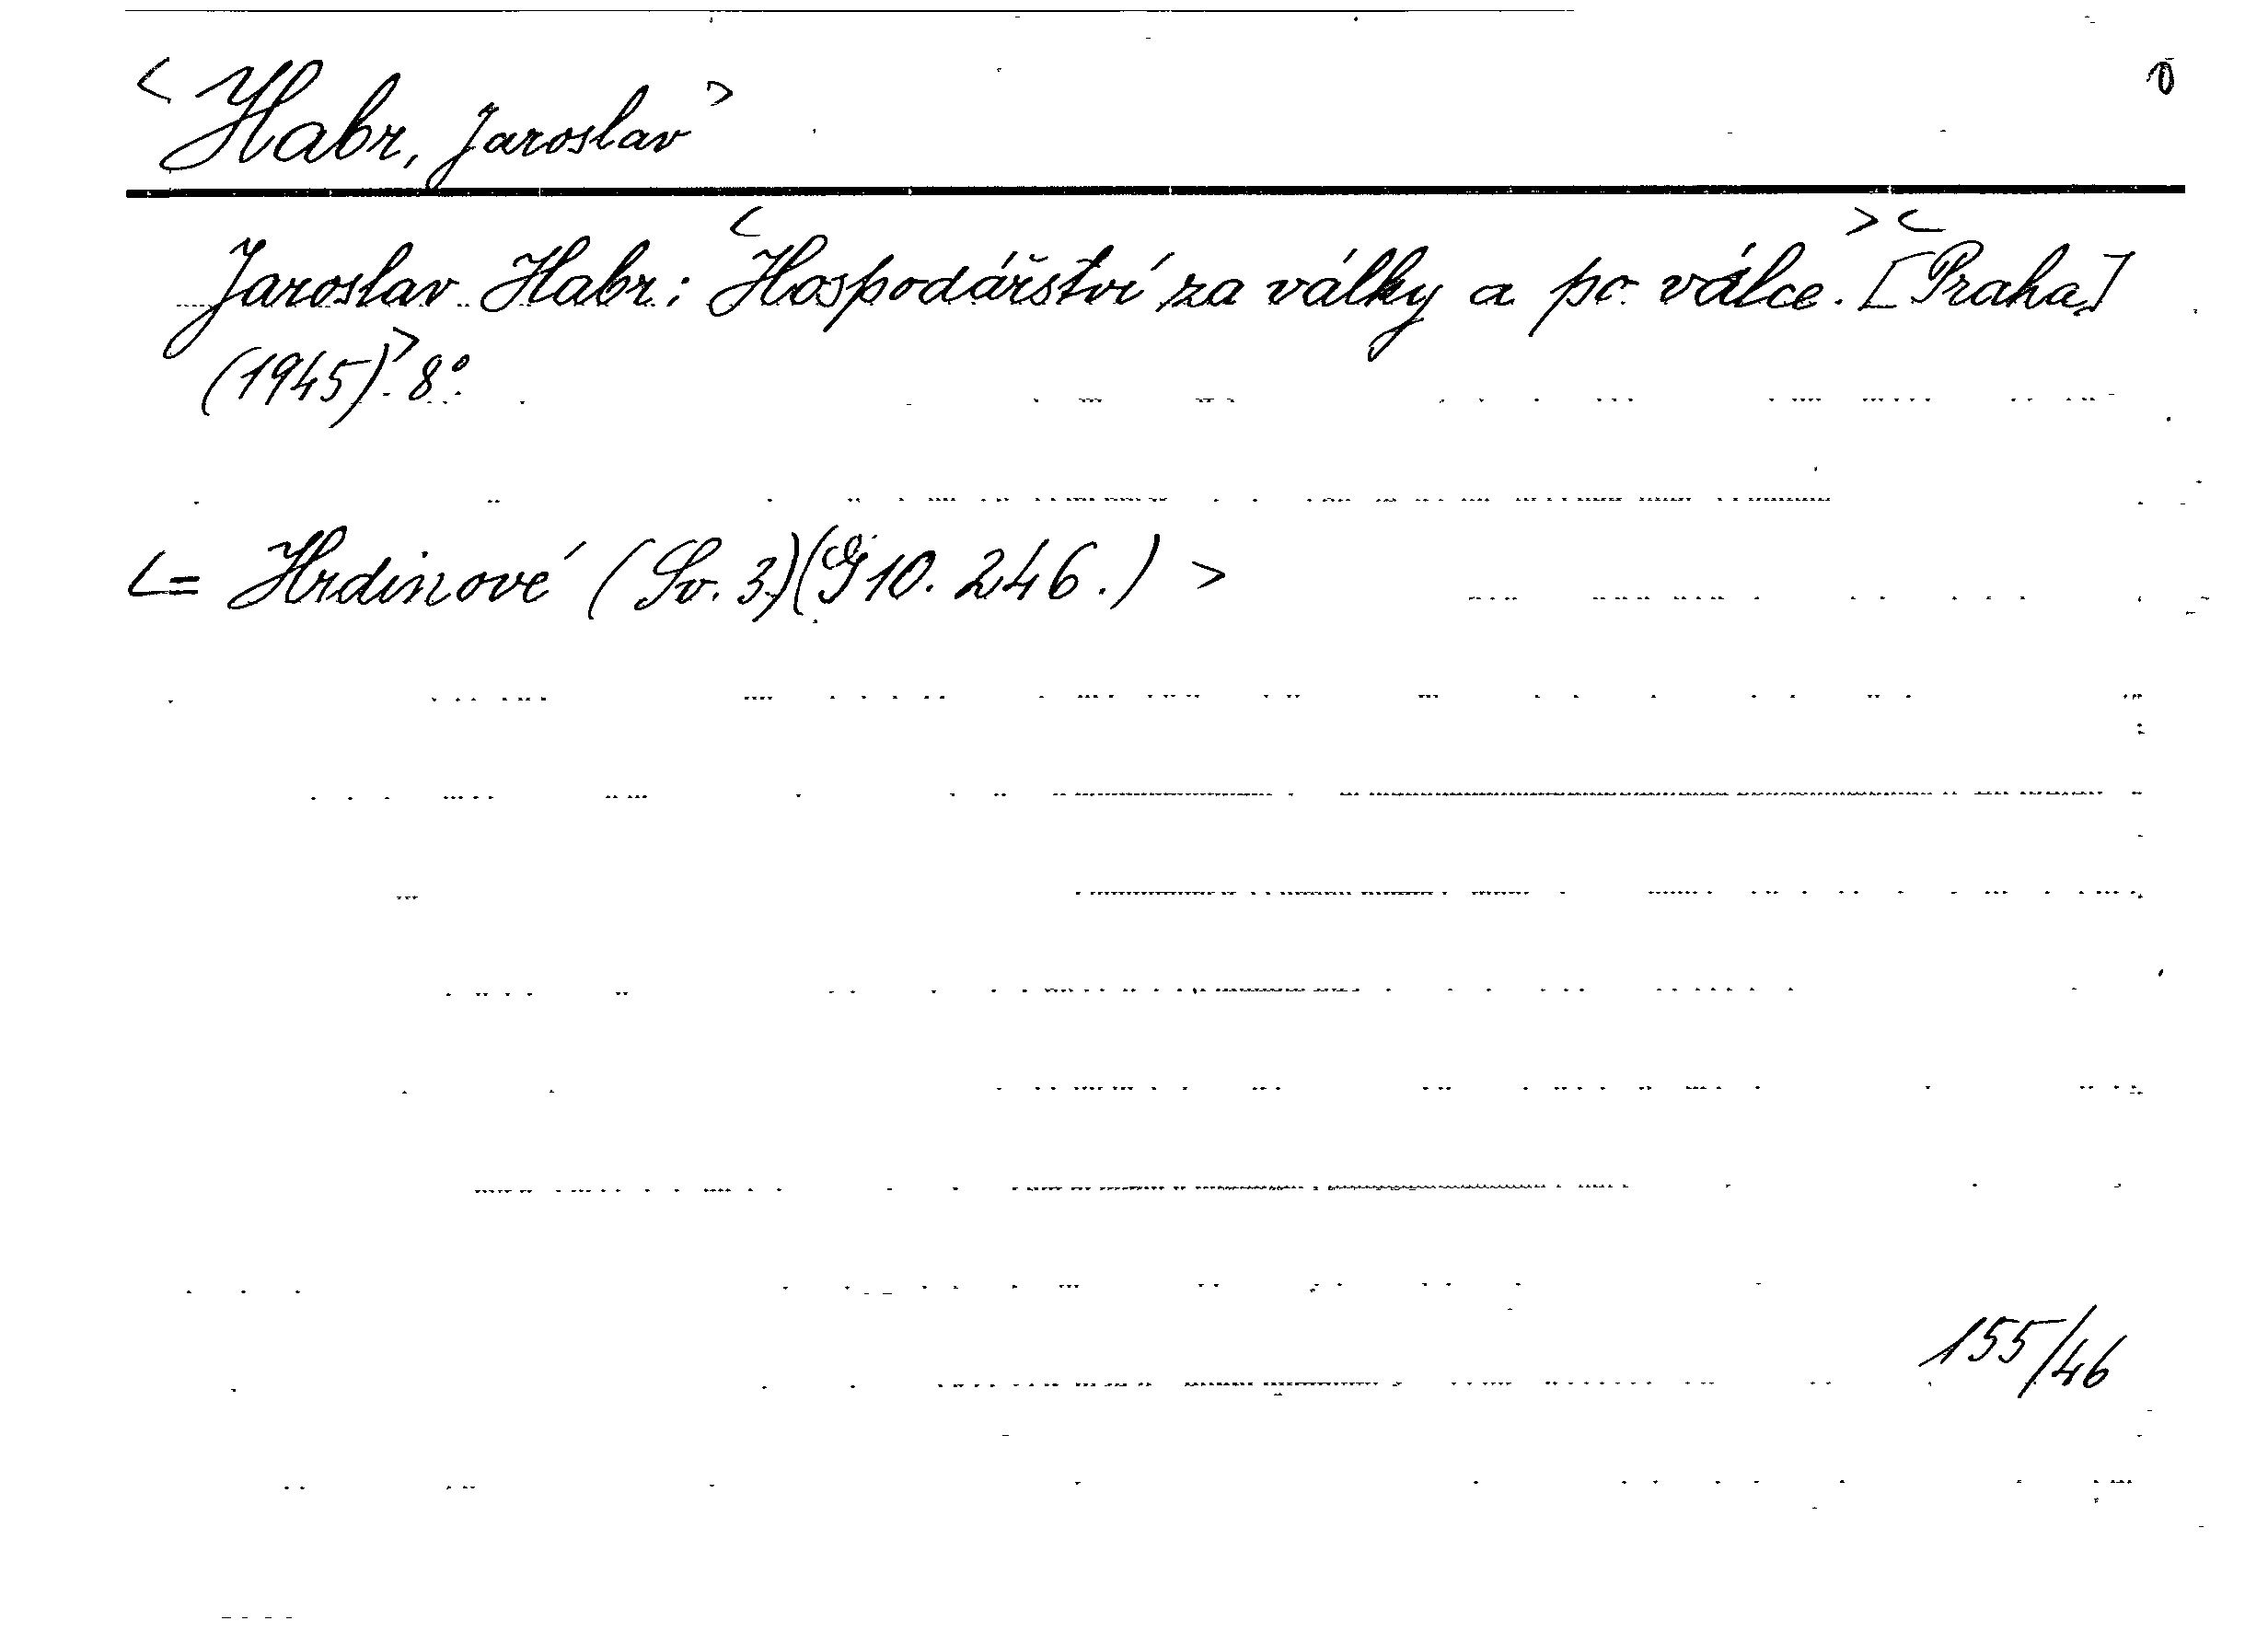 <Habr, Jaroslav>
Jaroslav Habr: <Hospodářství za války a po válce.> <[Praha]
(1945).> 8°.
<= Hrdinové (Sv. 3.) (G 10. 246.) >
155/46